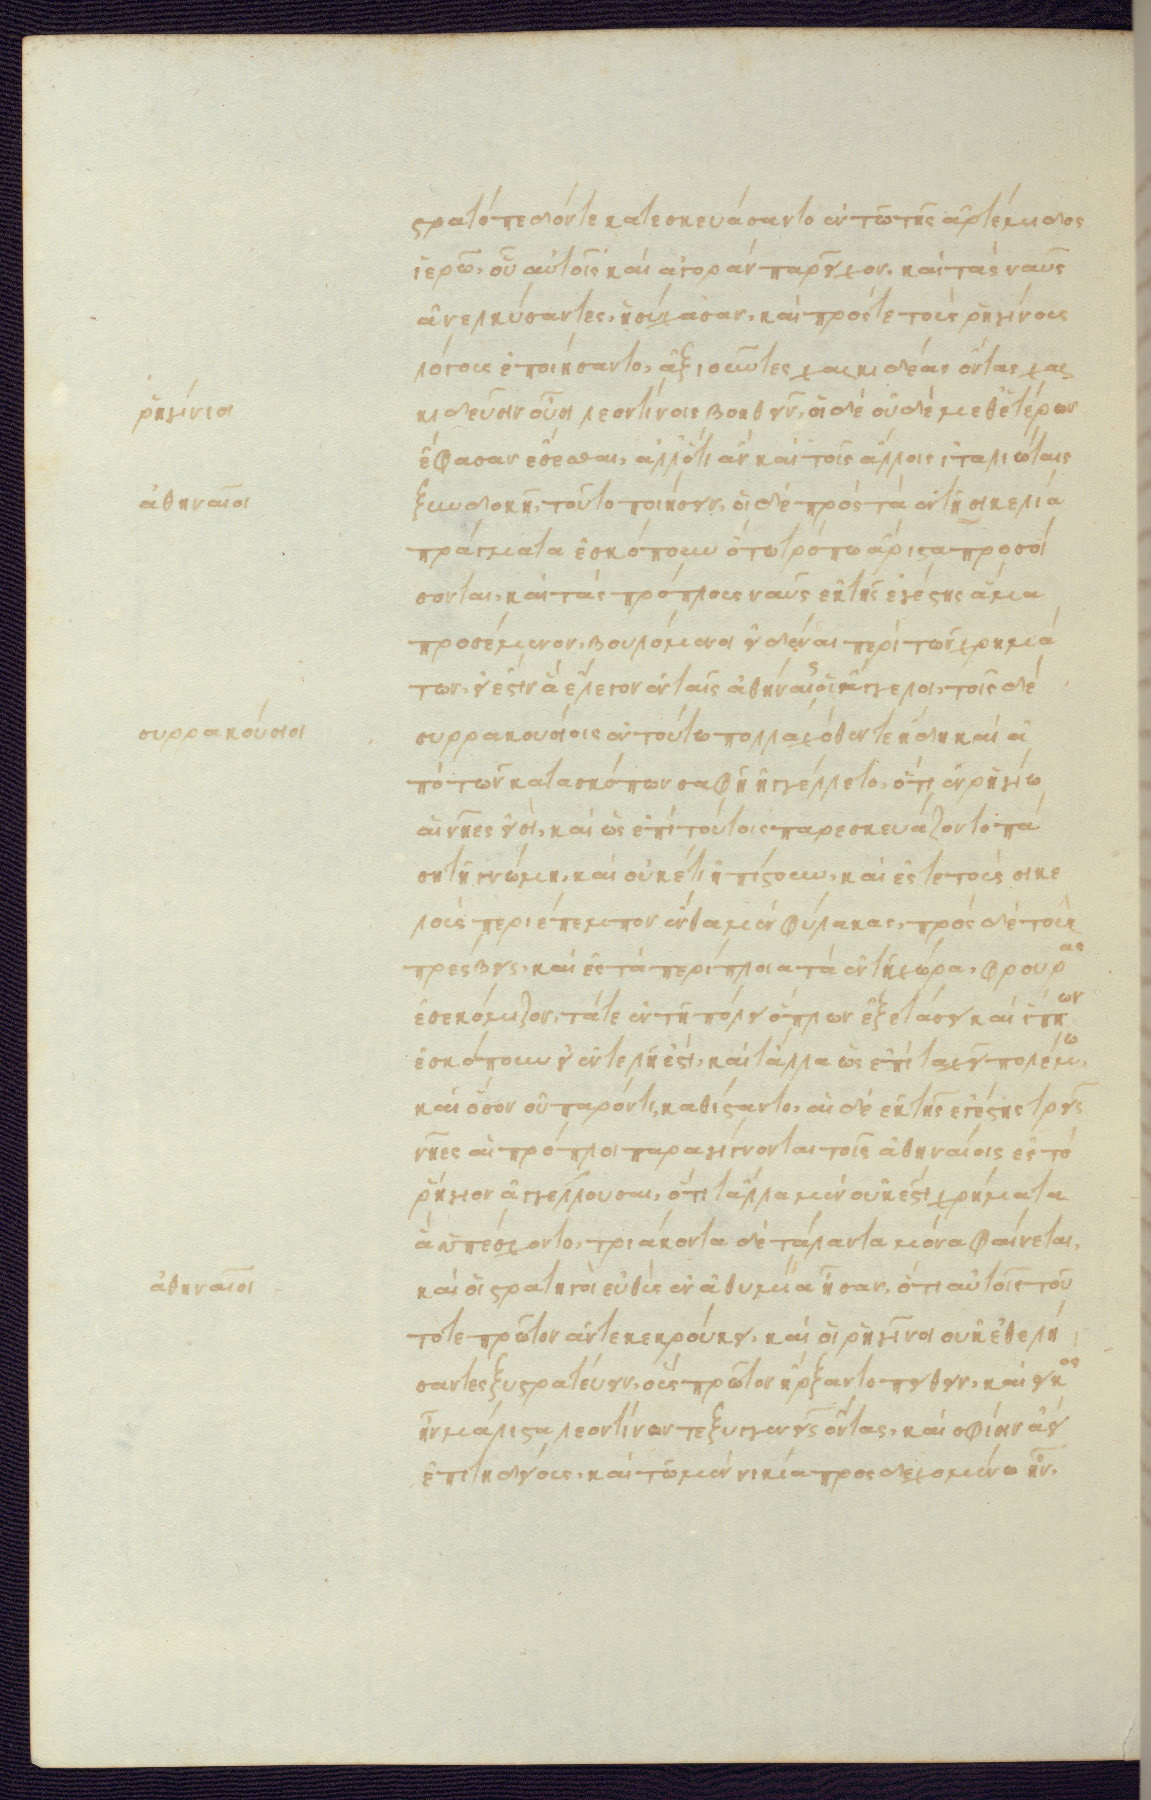 στρατόπεδόν τε κατεσκευάσαντο ἐν τῶ τῆς ἀρτέμιδος
ἱερῶ, οὗ αὐτοῖς καὶ ἀγορὰν παρεῖχον, καὶ τὰς ναῦς
ἀνελκύσαντες, ἡσύχασαν, καὶ πρός τε τοὺς ῥηγίνους
λόγους ἐποιήσαντο, ἀξιοῦντες χαλκιδέας ὄντας χαλ
ῥηγίνοι
κιδεῦσιν οὖσι λεοντίνοις βοηθεῖν, οἱ δὲ οὐδὲ μεθ' ἑτέρων
ἔφασαν ἔσεσθαι, ἀλλ' ὅτι ἂν καὶ τοῖς ἄλλοις ἰταλιώταις
ἀθηναῖοι
ξυνδοκῇ, τοῦτο ποιήσειν, οἱ δὲ πρὸς τὰ ἐν τῇ σικελία
πράγματα ἐσκόπουν ὅτω τρόπω ἄριστα προσοί
σονται, καὶ τὰς πρόπλους ναῦς ἐκ τῆς ἐγέστης ἅμα
προσέμενον, βουλόμενοι εἰδέναι περὶ τῶν χρημά
των, εἰ ἔστιν ἃ ἔλεγον ἐν ταῖς ἀθήναις οἱ ἄγγελοι, τοῖς δὲ
συρρακούσιοι
συρρακουσίοις ἐν τούτω πολλαχόθεν τε ἤδη καὶ ἀ
πὸ τῶν κατασκόπων σαφῆ ἠγγέλλετο, ὅτι ἐν ῥηγίω
αἱ νῆες εἰσὶ, καὶ ὡς ἐπὶ τούτοις παρεσκευάζοντο πά
σῃ τῇ γνώμη, καὶ οὐκέτι ἠπίστουν, καὶ ἔς τε τοὺς σικε
λοὺς περιέπεμπον ἔνθα μὲν φύλακας, πρὸς δὲ τοὺς
πρέσβεις, καὶ ἐς τὰ περιπόλια τὰ ἐν τῇ χώρα, φρουρὰς
ἐσεκόμιζον, τά τε ἐν τῇ πόλει ὅπλων ἐξετάσει καὶ ἵππων
ἐσκόπουν εἰ ἐντελῆ ἐστὶ, καὶ τἄλλα ὡς ἐπὶ ταχεῖ πολέμω,
καὶ ὅσον οὐ παρόντι, καθίσταντο, αἱ δὲ ἐκ τῆς ἐγέστης τρεῖς
νῆες αἱ πρόπλοι παραγίγνονται τοῖς ἀθηναίοις ἐς τὸ
ῥήγιον ἀγγέλλουσαι, ὅτι τἄλλα μὲν οὐκ ἔστι χρήματα
ἃ ὑπέσχοντο, τριάκοντα δὲ τάλαντα μόνα φαίνεται,
ἀθηναῖοι
καὶ οἱ στρατηγοὶ εὐθὺς ἐν ἀθυμία ἦσαν, ὅτι αὐτοῖς τοῦ
τό τε πρῶτον ἀντεκεκρούκει, καὶ οἱ ῥηγῖνοι οὐκ ἐθελή
σαντες ξυστρατεύειν, οὓς πρῶτον ἤρξαντο πείθειν, καὶ εἰκὸς
ἦν μάλιστα λεοντίνων τε ξυγγενεῖς ὄντας, καὶ σφίσιν ἀεὶ
ἐπιτηδείους, καὶ τῶ μὲν νικία προσδεχομένω ἦν,